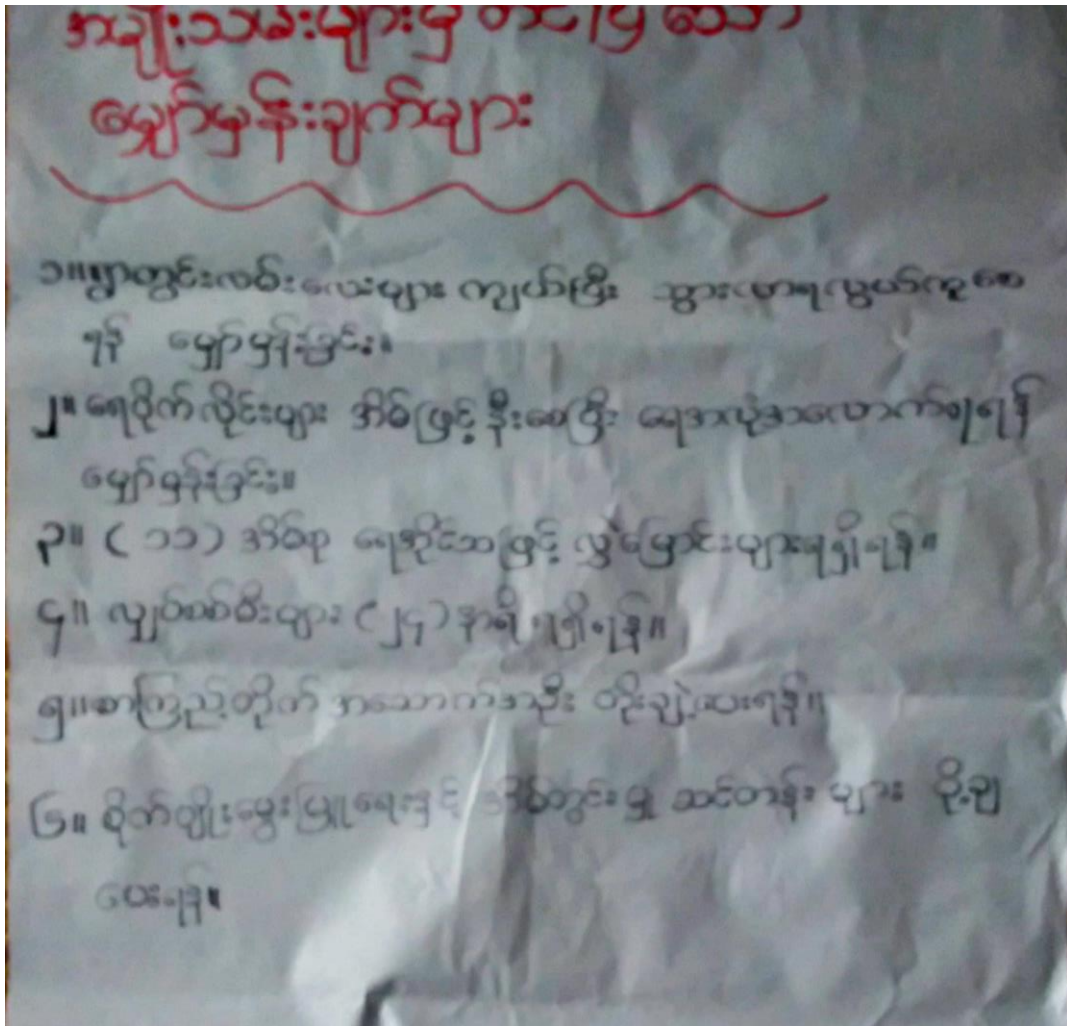 အမျိုးသမီးများမှ တင်ပြသော
မျှော်မှန်းချက်များ
၁။ ရွာတွင်းလမ်းလေးများ ကျယ်ပြီး သွားလာရလွယ်ကူစေ
ရန် မျှော်မှန်းခြင်း။
၂။ ရေပိုက်လိုင်းများ အိမ်ဖြင့်နီးစေပြီး ရေအလုံအလောက်ရရန်
မျှော်မှန်းခြင်း။
၃။ (၁၁) အိမ်စု ရေအိုင်သဖြင့် လွှဲမြောင်းများရရှိရန်။
၄။ လျှပ်စစ်မီးများ (၂၄) နာရီ ရရှိရန်။
၅။ စာကြည့်တိုက် အဆောက်အဦး တိုးချဲ့ပေးရန်။
၆။ စိုက်ပျိုးမွေးမြူရေးနှင့် အိမ်တွင်းမှု သင်တန်း များ ပို့ချ
ပေးရန်။